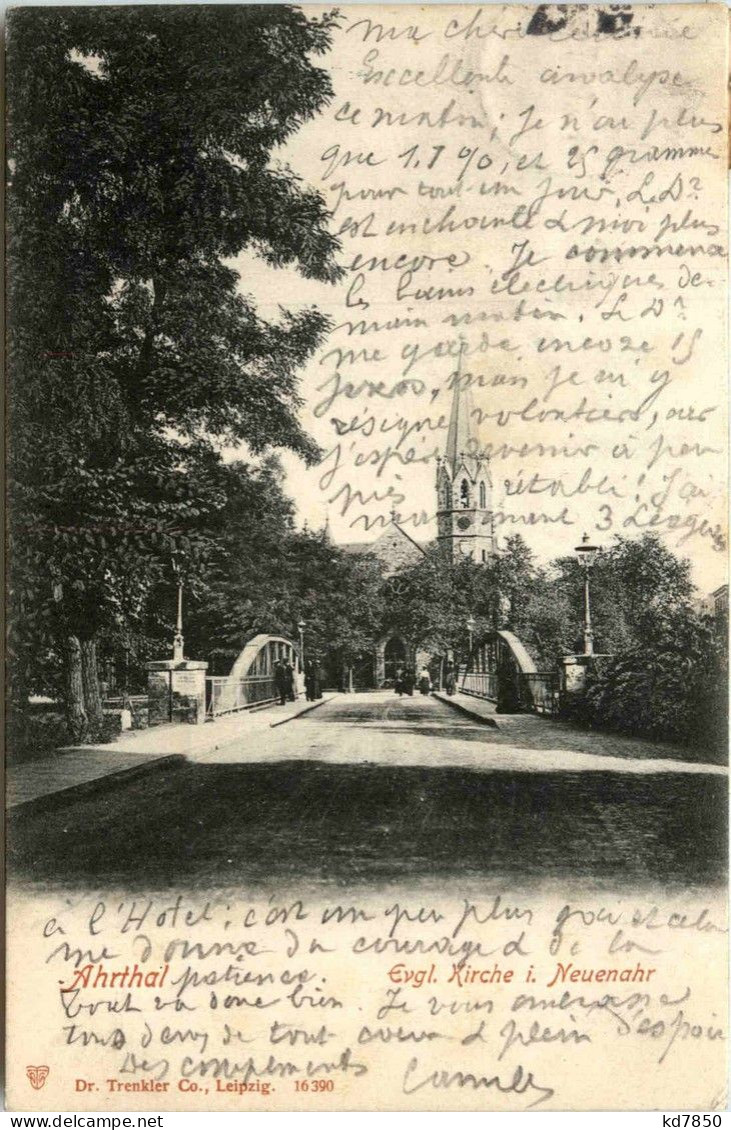 ma chère
Excellente analyse
ce matin; je n'ai plus
que 1.7 %, et 25 grammes
pour tout un jour, L. Dr
est enchanté & moi plus
encore. Je commence
les bains électriques de-
main matin. L. Dr
me garde encore 15
jours, mais je m'y
résigne volontiers, car
j'espère revenir à peu
près rétabli! J'ai
maintenant 3
à l'Hotel; c'est un peu plus gai et cela
me donne du courage & de la
patience.
Tout va donc bien. Je vous embrasse
tous deux de tout coeur & plein d'espoir
Des compliments
Camille
Ahrthal
Evgl. Kirche i. Neuenahr
Dr. Trenkler Co., Leipzig. 16390
kd7850